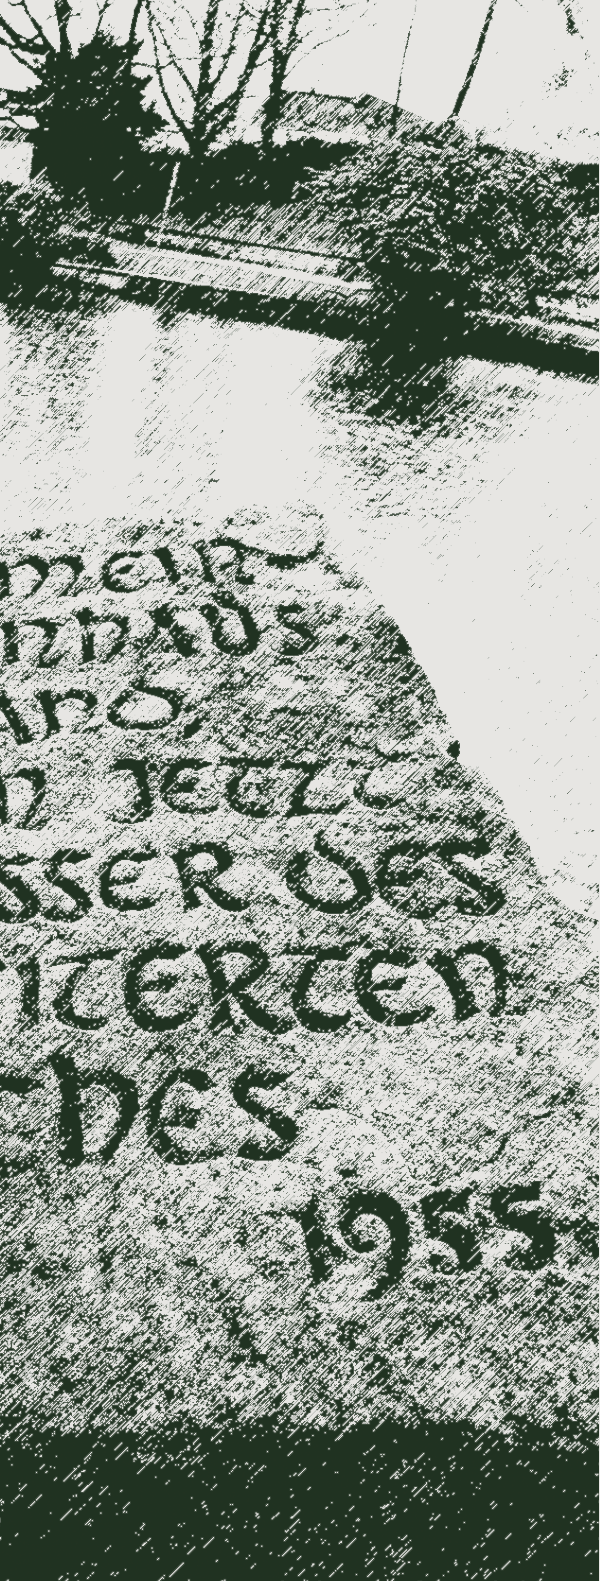 mein-
nnhaus
and,
n JETZT
SSER DES
ITERTEN
HES
1955